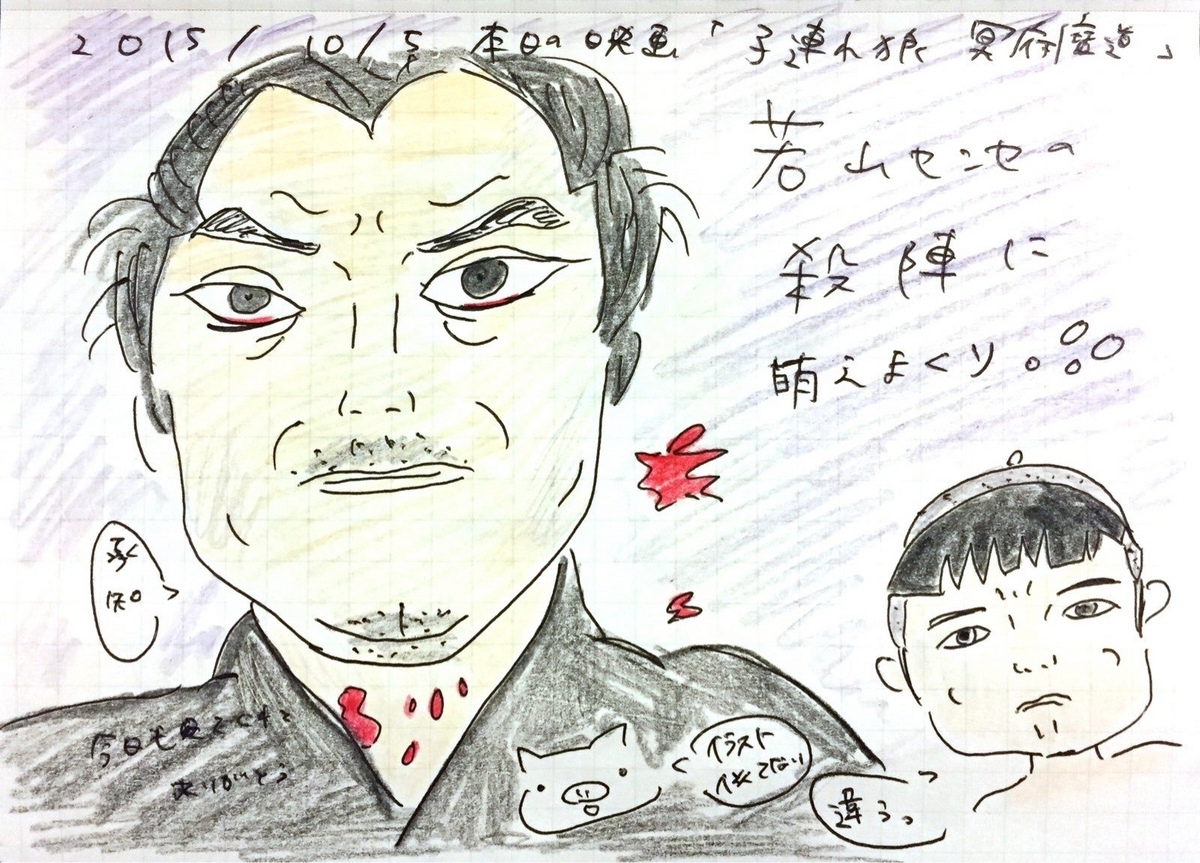 2015/10/5 本日の日発画「子連れ狼 冥府魔道」
若山センセの
殺陣に
萌えまくり。。。。
承知
イラスト
似てない
違うっ
今日も見てくれて
ありがとう